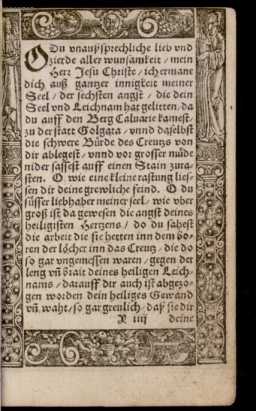 O Du vnaußsprechliche lieb vnd
zierde aller wunsamkeit / mein
Herr Jesu Christe / ich ermane
dich auß gantzer innigkeit meiner
Seel / der sechsten angst / die dein
Seel vnd Leichnam hat gelitten / da
du auff den Berg Caluarie kamest /
zu der statt Golgata / vnnd daselbst
die schwere Bürde des Creutzs von
dir ablegest / vnnd vor grosser müde
nider sassest auff einen Stain zura-
sten. O wie eine kleine rastung lies-
sen dir deine grewliche feind. O du
süsser liebhaber meiner seel / wie vber
groß ist da gewesen die angst deines
heiligisten Hertzens / do du sahest
die arbeit die sie hetten inn dem bo-
ren der löcher inn das Creutz / die do
so gar vngemessen waren / gegen der
leng vñ brait deines heiligen Leich-
nams / darauff dir auch ist abgezo-
gen worden dein heiliges Gewand
vñ waht / so gar greulich / daß sie dir
R iiij deine